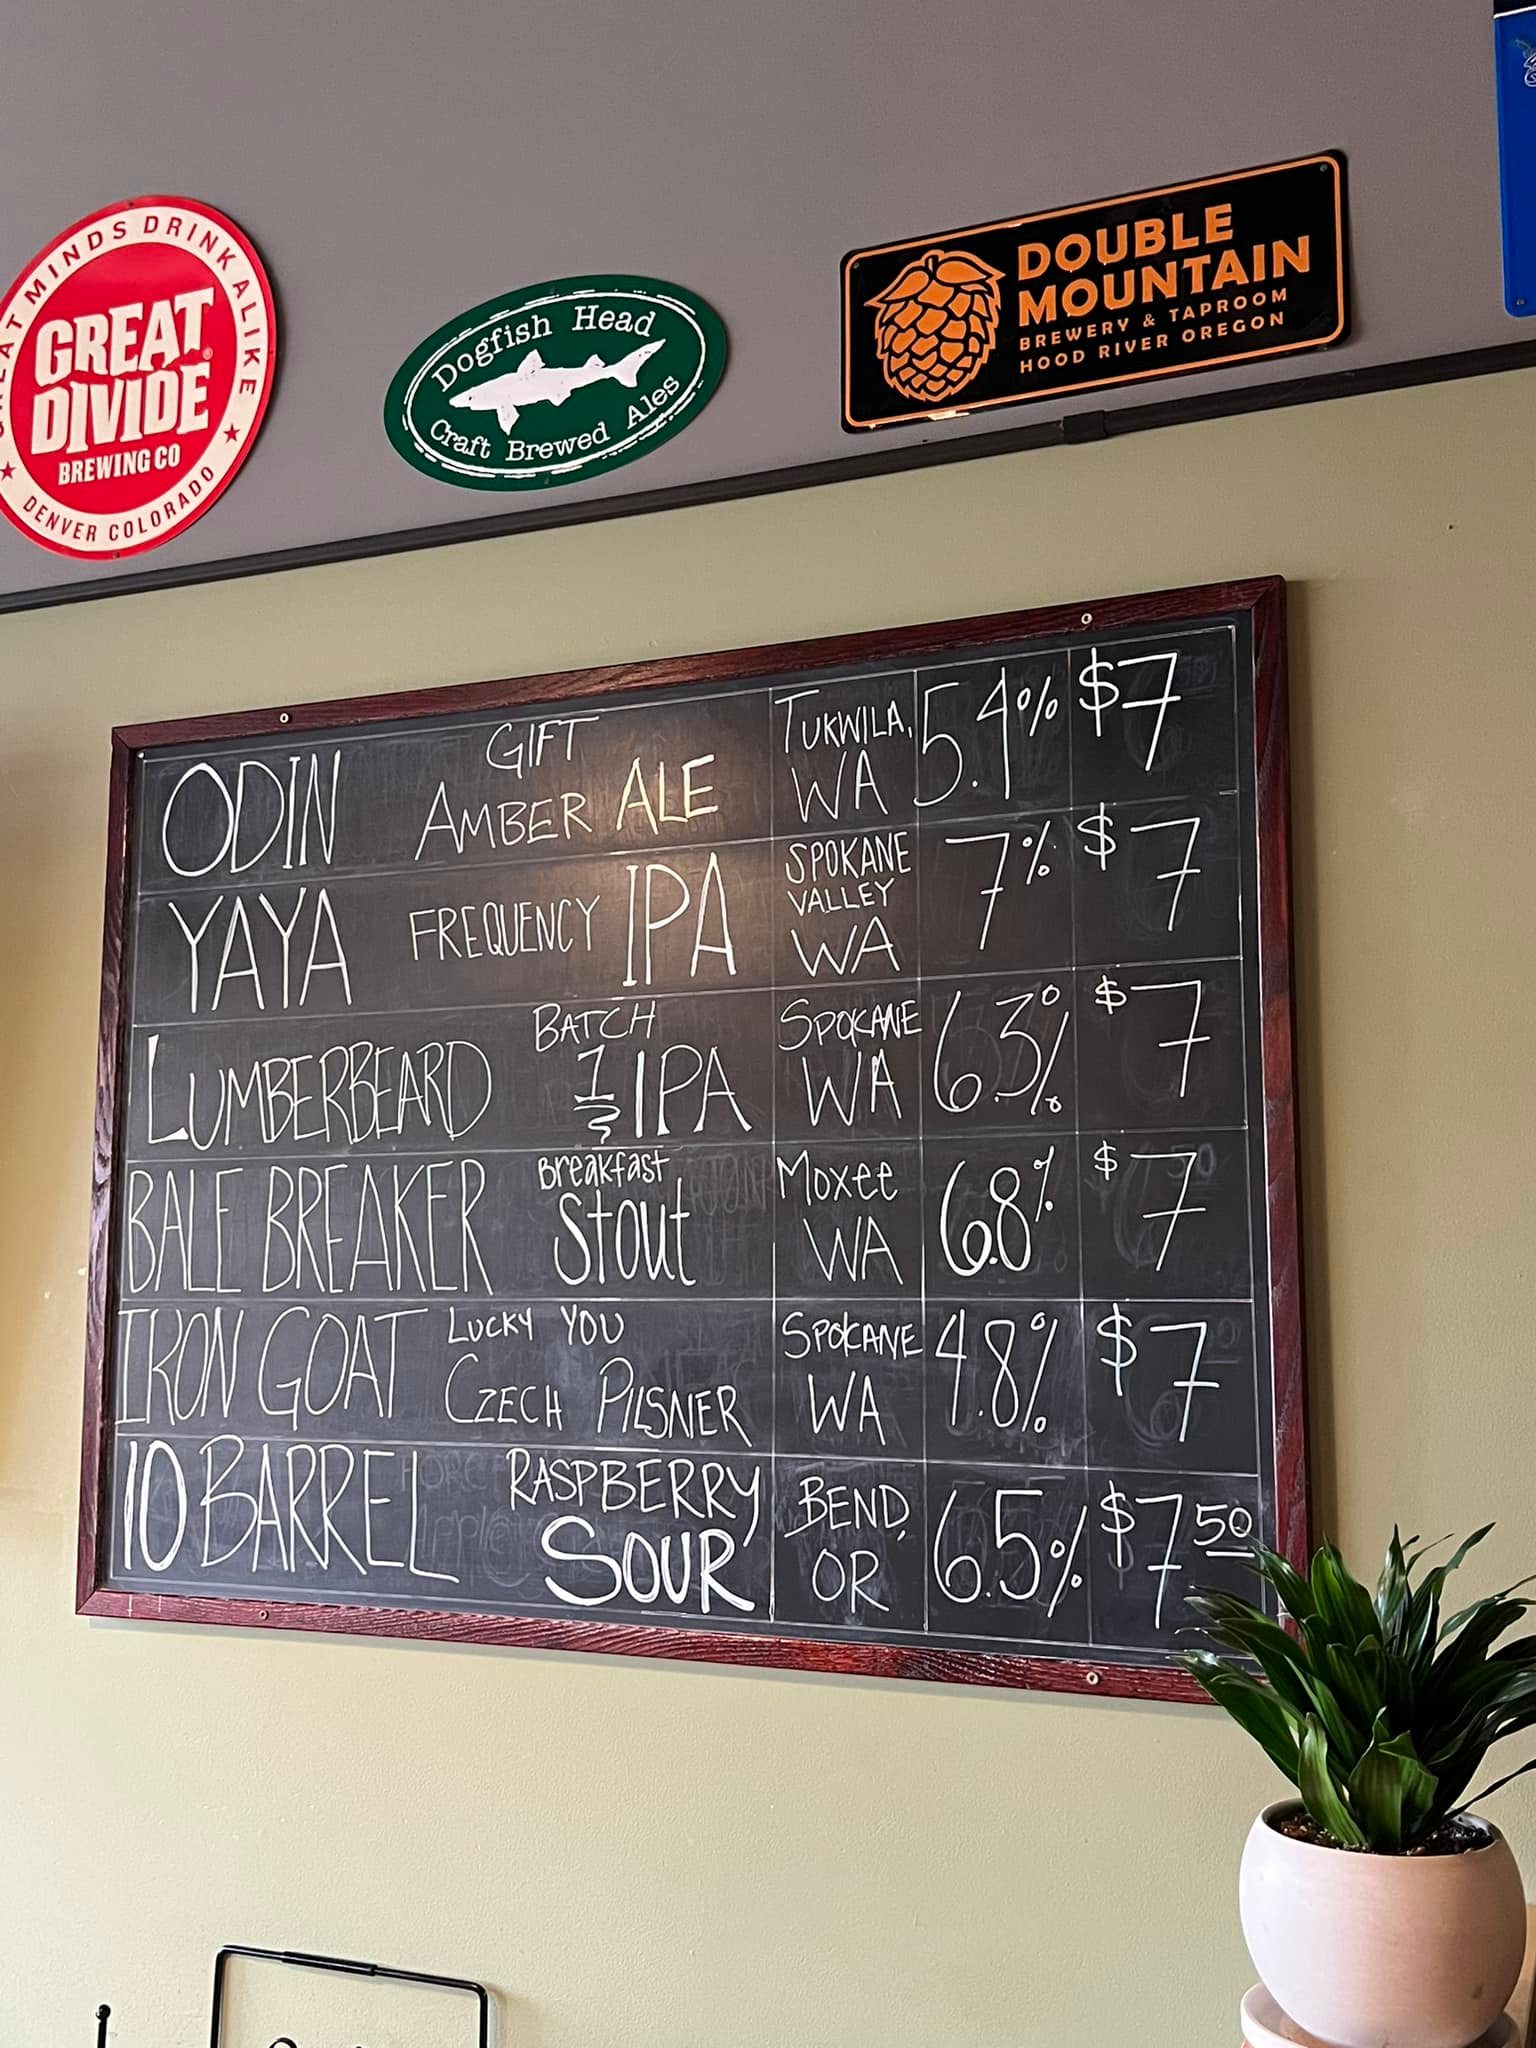 GREAT MINDS DRINK ALIKE
GREAT
DIVIDE
BREWING CO
DENVER COLORADO
Dogfish Head
Craft Brewed Ales
DOUBLE
MOUNTAIN
BREWERY & TAPROOM
HOOD RIVER OREGON
ODIN GIFT AMBER ALE TUKWILA, WA 5.4% $7
YAYA FREQUENCY IPA SPOKANE VALLEY WA 7% $7
LUMBERBEARD BATCH 1 IPA SPOKANE WA 6.3% $7
BALE BREAKER Breakfast Stout Moxee WA 6.8% $7
IRON GOAT LUCKY YOU CZECH PILSNER SPOKANE WA 4.8% $7
10 BARREL RASPBERRY SOUR BEND, OR 6.5% $7 50